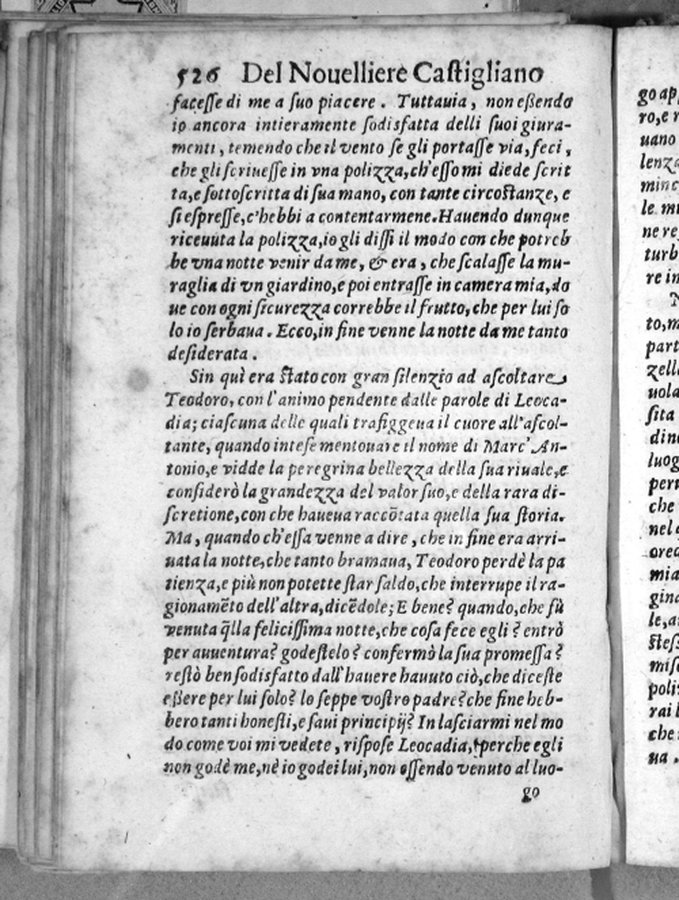 526 Del Nouelliere Castigliano
facesse di me a suo piacere. Tuttauia, non essendo
io ancora intieramente sodisfatta delli suoi giura-
menti, temendo che il vento se gli portasse via, feci,
che gli scriuesse in vna polizza, ch'esso mi diede scrit
ta, e sottoscritta di sua mano, con tante circostanze, e
si espresse, c'hebbi a contentarmene. Hauendo dunque
riceuuta la polizza, io gli dissi il modo con che potreb
be vna notte venir da me, & era, che scalasse la mu-
raglia di vn giardino, e poi entrasse in camera mia, do
ue con ogni sicurezza correbbe il frutto, che per lui so
lo io serbaua. Ecco, in fine venne la notte da me tanto
desiderata.
Sin quì era stato con gran silenzio ad ascoltare
Teodoro, con l'animo pendente dalle parole di Leoca-
dia; ciascuna delle quali trafiggeua il cuore all'ascol-
tante, quando intese mentouare il nome di Marc' An-
tonio, e vidde la peregrina bellezza della sua riuale, e
considerò la grandezza del valor suo, e della rara di-
scretione, con che haueua raccōtata quella sua storia.
Ma, quando ch'essa venne a dire, che in fine era arri-
uata la notte, che tanto bramaua, Teodoro perdè la pa
tienza, e più non potette star saldo, che interrupe il ra-
gionamēto dell'altra, dicēdole; E bene? quando, che fù
venuta q̃lla felicissima notte, che cosa fece egli? entrò
per auuentura? godestelo? confermò la sua promessa?
restò ben sodisfatto dall'hauere hauuto ciò, che diceste
essere per lui solo? lo seppe vostro padre? che fine heb-
bero tanti honesti, e saui principij? In lasciarmi nel mo
do come voi mi vedete, rispose Leocadia, perche egli
non godè me, nè io godei lui, non essendo venuto al luo-
go
go app
ro, e r
uano
lenza
minc
le mi
ne re
turb
re in
N
to, m
part
zell
uola
sita
dino
luog
peri
che
nel
orec
mia
gina
le, a
stess
mise
poli
rai l
che
ua.